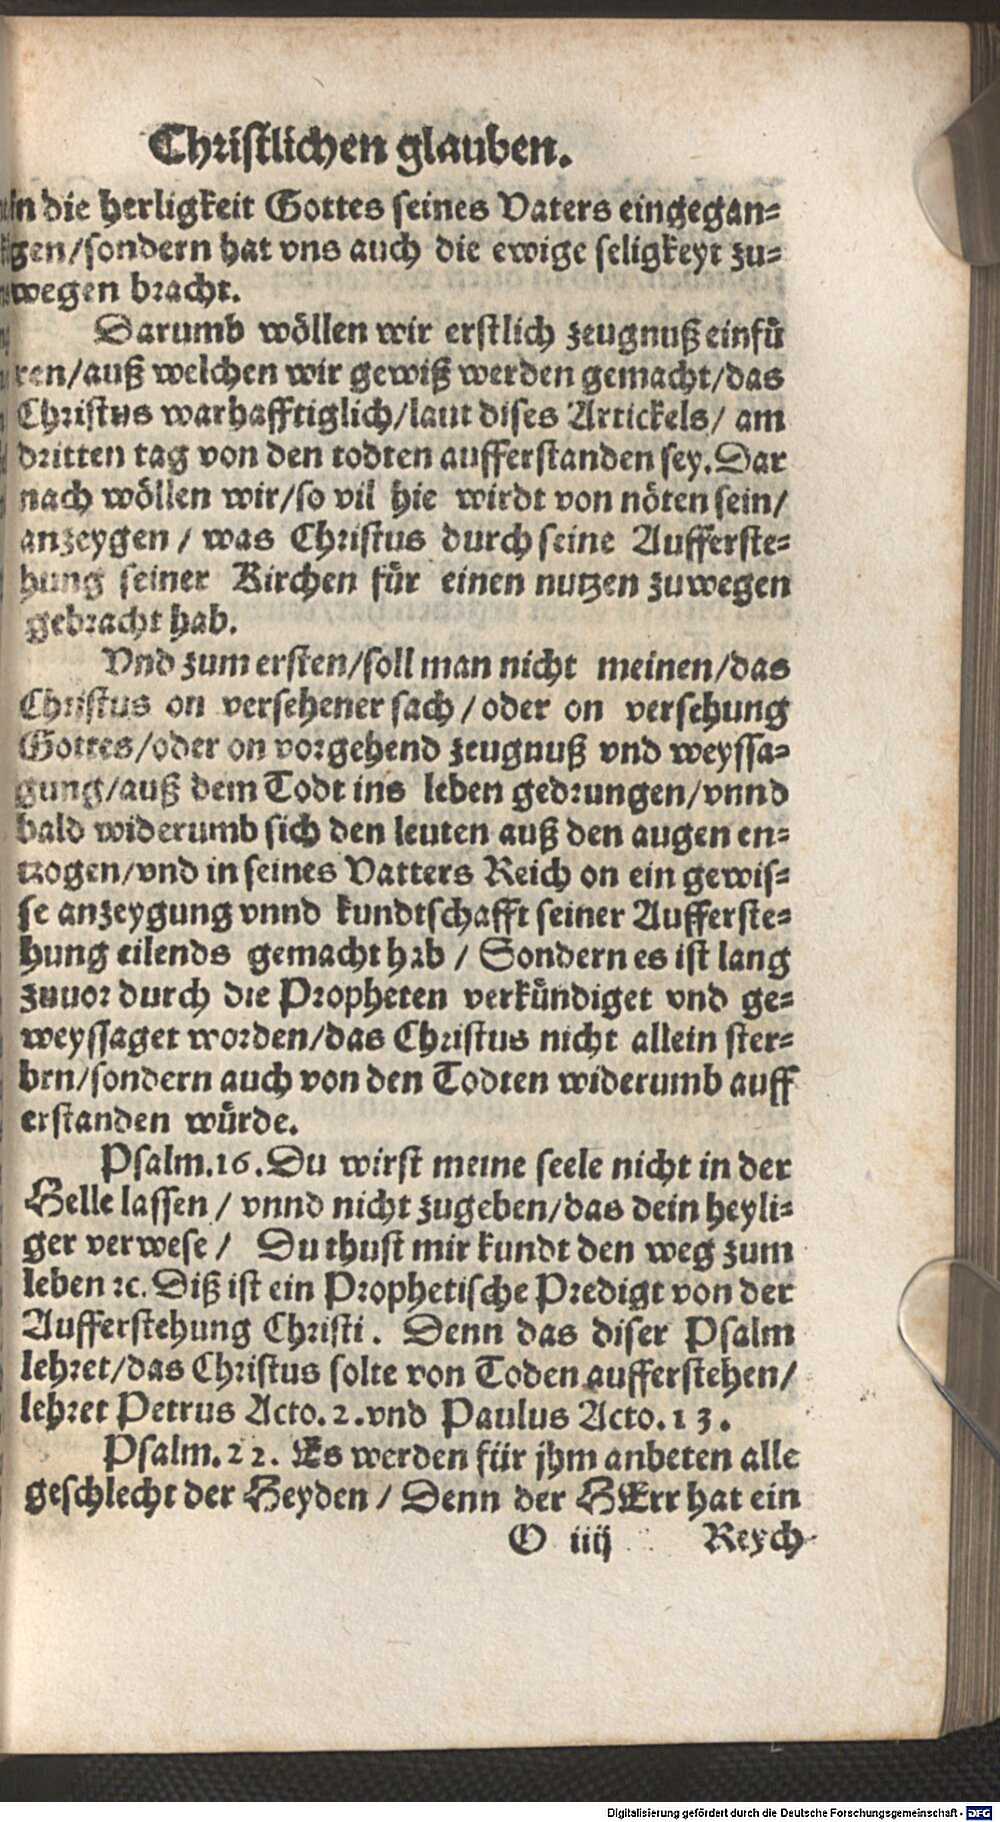 Christlichen glauben.
in die herligkeit Gottes seines Vaters eingegan-
gen/sondern hat vns auch die ewige seligkeyt zu-
wegen bracht.
Darumb wöllen wir erstlich zeugnuß einfü
ren/auß welchen wir gewiß werden gemacht/das
Christus warhafftiglich/laut dises Artickels/ am
dritten tag von den todten aufferstanden sey. Dar
nach wöllen wir/so vil hie wirdt von nöten sein/
anzeygen / was Christus durch seine Aufferste-
hung seiner Kirchen für einen nutzen zuwegen
gebracht hab.
Vnd zum ersten/soll man nicht meinen/das
Christus on versehener sach / oder on versehung
Gottes/oder on vorgehend zeugnuß vnd weyssa-
gung/auß dem Todt ins leben gedrungen/vnnd
bald widerumb sich den leuten auß den augen en-
tzogen/vnd in seines Vatters Reich on ein gewis-
se anzeygung vnnd kundtschafft seiner Aufferste-
hung eilends gemacht hab / Sondern es ist lang
zuuor durch die Propheten verkündiget vnd ge-
weyssaget worden/das Christus nicht allein ster-
ben/sondern auch von den Todten widerumb auff
erstanden würde.
Psalm.16. Du wirst meine seele nicht in der
Helle lassen / vnnd nicht zugeben/das dein heyli-
ger verwese / Du thust mir kundt den weg zum
leben ꝛc. Diß ist ein Prophetische Predigt von der
Aufferstehung Christi. Denn das diser Psalm
lehret/das Christus solte von Toden aufferstehen/
lehret Petrus Acto.2.vnd Paulus Acto.13.
Psalm.22. Es werden für jhm anbeten alle
geschlecht der Heyden / Denn der HErr hat ein
O iiij Reych
Digitalisierung gefördert durch die Deutsche Forschungsgemeinschaft - DFG